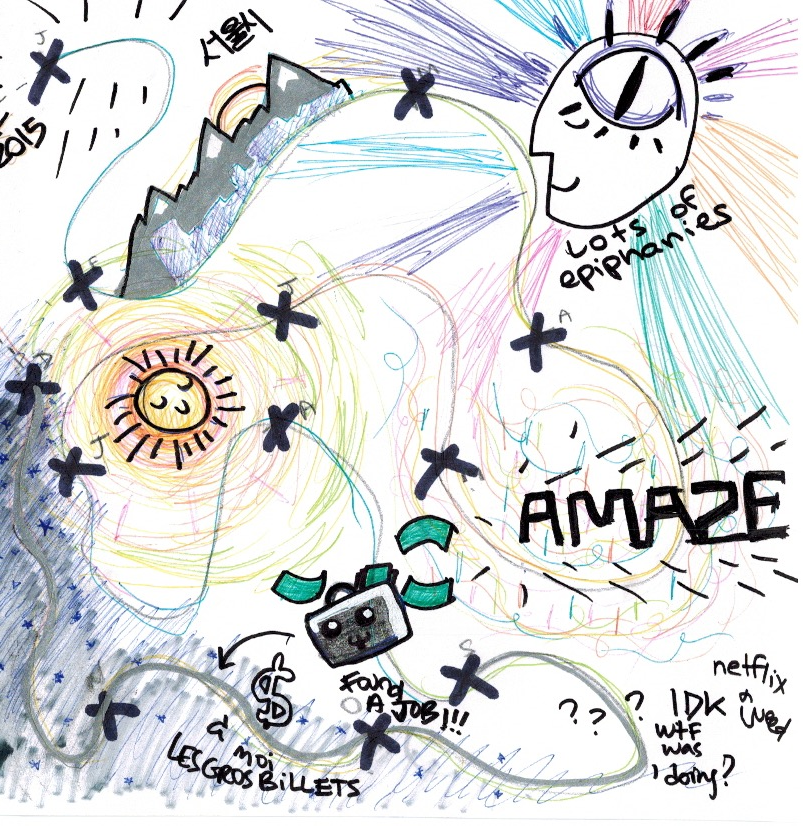 J
서울시
2015
Lots of
epiphanies
A
J
J
A
AMAZE
S
Found
A JOB!!!
O
$
à moi
LES GROS BILLETS
? ? ?
IDK
wtf
was
I doing?
netflix
n
weed